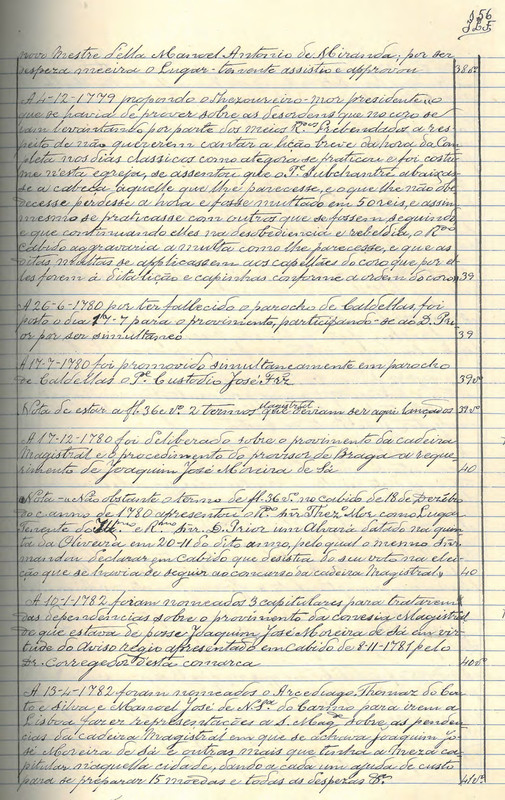 156
novo Mestre d'ella Manoel Antonio de Miranda; por ser
vespera meeira o Lugar-tenente assistiu e approvou 38 vº
A 4-12-1779 propondo o Thezoureiro-mor presidente "o
que se havia de prover sobre as desordens que no coro se
iam levantando por parte dos meios R.dos Prebendados a res-
peito de não quererem cantar a lição breve da hora da Com-
pleta nos dias classicos como atégora se praticou e foi costu-
me n'esta egreja, se assentou que o P.e Subchantre abaixas-
se a cabeça áquelle que lhe parecesse, e o que lhe não obe-
decesse perdesse a hora e fosse multado em 50 reis, e assim
mesmo se praticasse com outros que se fossem seguindo
e que continuando elles na desobediencia e rebeldia, o R.mo
Cabido aggravaria a multa como lhe parecesse, e que as
ditas multas se applicassem aos capellães do coro que por el-
les forem á dita lição e capinhas conforme a ordem do coro 39
A 26-6-1780 por ter fallecido o parocho de Caldellas, foi
posto o dia 17-7 para o provimento, participando-se ao D. Pri-
or por ser simultaneo 39
A 17-7-1780 foi promovido simultaneamente em parocho
de Caldellas o P.e Custodio José Frz 39 vº
Nota de estar a fl. 36 e vº 2 termos magistral que deviam ser aqui lançados 39 vº
A 17-12-1780 foi deliberado sobre o provimento da cadeira
Magistral e o procedimento do provisor de Braga a reque-
rimento de Joaquim José Moreira de Sá 40
Nota - «Não obstante o termo de fl. 36 vº no cabido de 18 de Dezembro
do anno de 1780 apresentou o R.do Snr. Thez.o Mor como Lugar
Tenente do Ill.mo e R.mo Snr. D. Prior um Alvará datado na quin-
ta da Oliveira em 20-11 do dito anno, pelo qual o mesmo Snr.
mandou declarar em Cabido que desistia do seu voto na elei-
ção que se havia de seguir ao concurso da cadeira Magistral» 40
A 10-1-1782 foram nomeados 3 capitulares para tratarem
das dependencias sobre o provimento da conesia Magistral
de que estava de posse Joaquim José Moreira de Sá em vir-
tude do Aviso régio apresentado em cabido de 8-11-1781 pelo
Dr. Corregedor d'esta comarca 40 vº
A 13-4-1782 foram nomeados o Arcediago, Thomaz do Cou-
to e Silva, e Manoel José de N. S.ra do Carmo para irem a
Lisboa fazer representações a S. Mag.e sobre as penden-
cias da cadeira Magistral em que se achava Joaquim Jo-
sé Moreira de Sá e outras mais que tinha a Meza ca-
pitular naquella cidade, dando a cada um ajuda de custo
para se preparar 15 moedas e todas as despezas &.a 41 vº